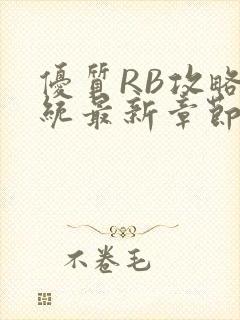 優質RB攻略
統最新章節
不卷毛